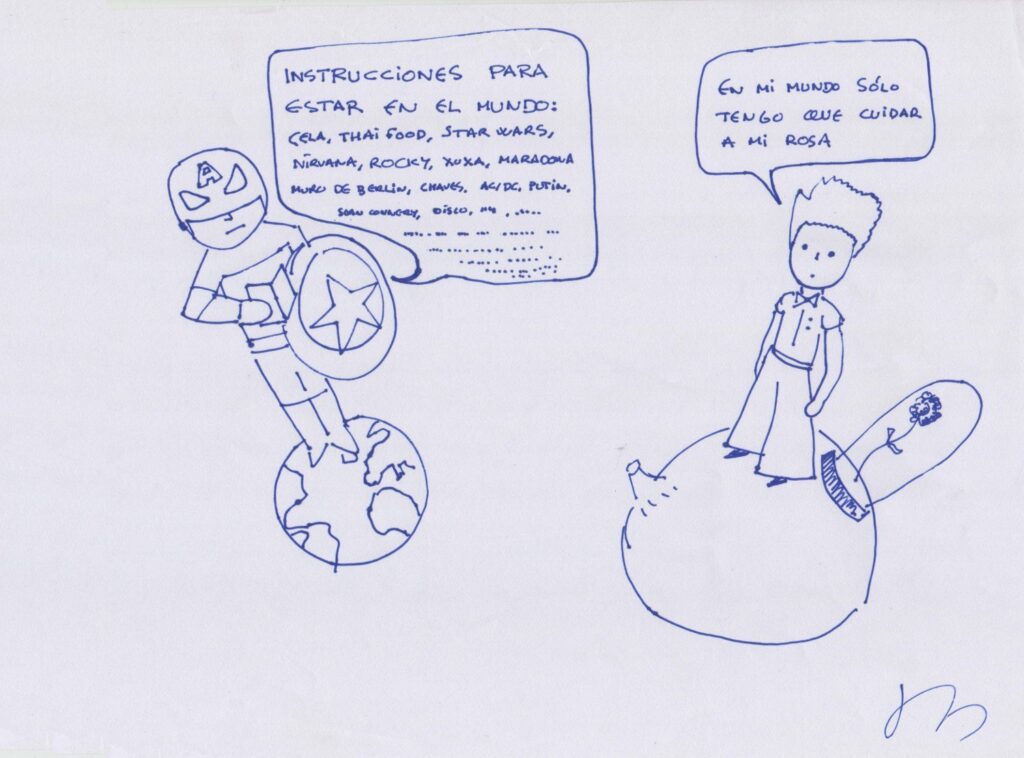 INSTRUCCIONES PARA
ESTAR EN EL MUNDO:
CELA, THAI FOOD, STAR WARS,
NIRVANA, ROCKY, XUXA, MARADONA
MURO DE BERLIN, CHAVES, AC/DC, PUTIN,
SEAN CONNERY, DISCO,
EN MI MUNDO SÓLO
TENGO QUE CUIDAR
A MI ROSA
A